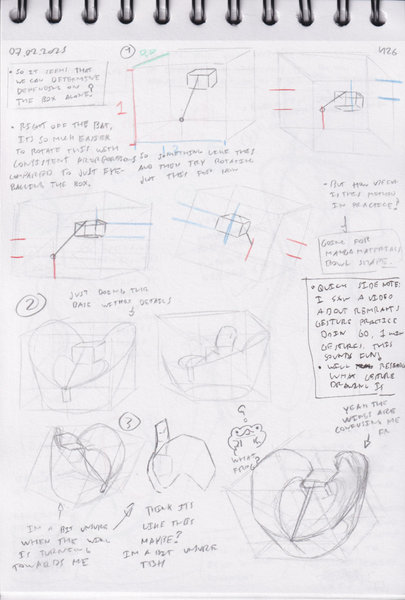 07.02.2021
1
426
• SO IT SEEMS THAT
WE CAN DETERMINE
DEPENDING ON
THE BOX ALONE?
1
• RIGHT OFF THE BAT,
IT'S SO MUCH EASIER
TO ROTATE THIS WITH
CONSISTENT
COMPARED TO JUST EYE-
BALLING THE BOX.
SO SOMETHING LIKE THIS
AND THEN TRY ROTATING
JUST THIS FOR NOW
• BUT HOW USEFUL
IS THIS METHOD
IN PRACTICE?
GOING FOR
MANGAMATERIALS
BOWL SHAPE
JUST DOING THE
BASE WITHOUT DETAILS
• QUICK SIDE NOTE:
I SAW A VIDEO
ABOUT REMBRANTS
GESTURE PRACTICE
DOIN 60, 1 MIN
GESTURES. THIS
SOUNDS FUN!
• WILL RESEARCH
WHAT GESTURE
DRAWING IS
2
3
?
WHAT
FROG?
YEAH THE
WINGS ARE
CONFUSING ME
I'M A BIT UNSURE
WHEN THE WING
IS TURNING
TOWARDS ME
THINK ITS
LIKE THIS
MAYBE?
I'M A BIT UNSURE
TBH